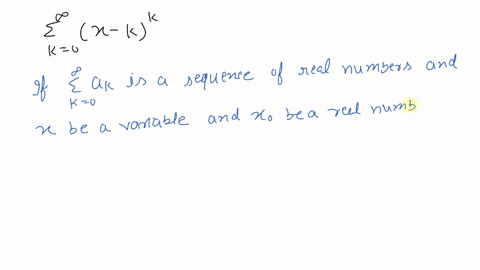 ∞
Σ (x-k)^k
k=0
If ∞Σk=0 ak is a sequence of real numbers and
x be a variable and x₀ be a real numb